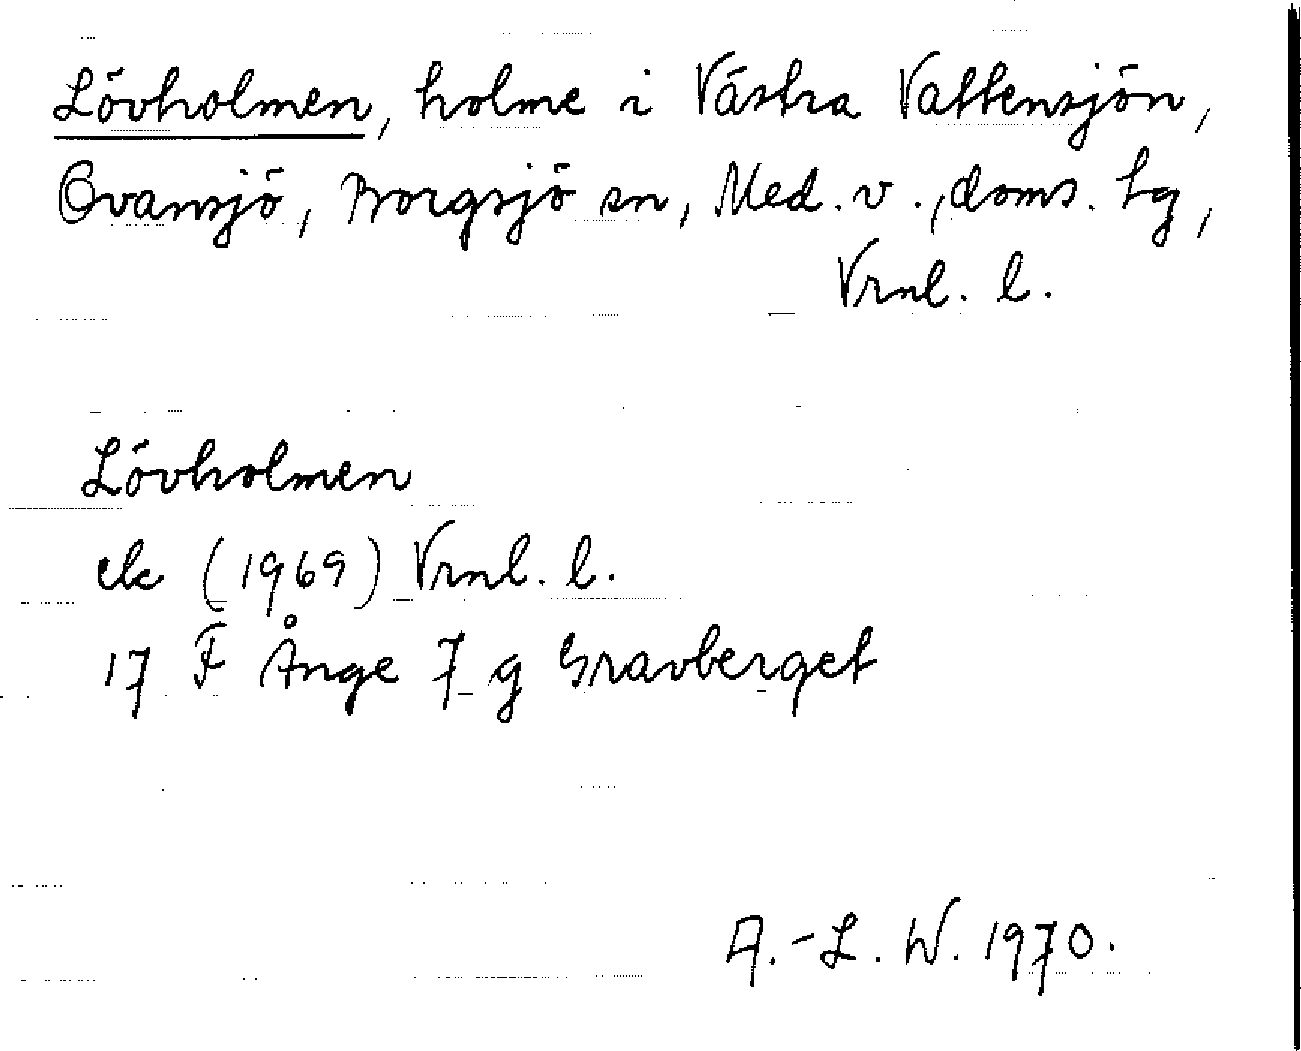 Lövholmen, holme i Västra Vattensjön,
Ovansjö, Borgsjö sn, Med. v., doms. hg,
Vrnl. l.
Lövholmen
ek (1969) Vrnl. l.
17 F Ånge 7 g Gravberget
A.-L. W. 1970.